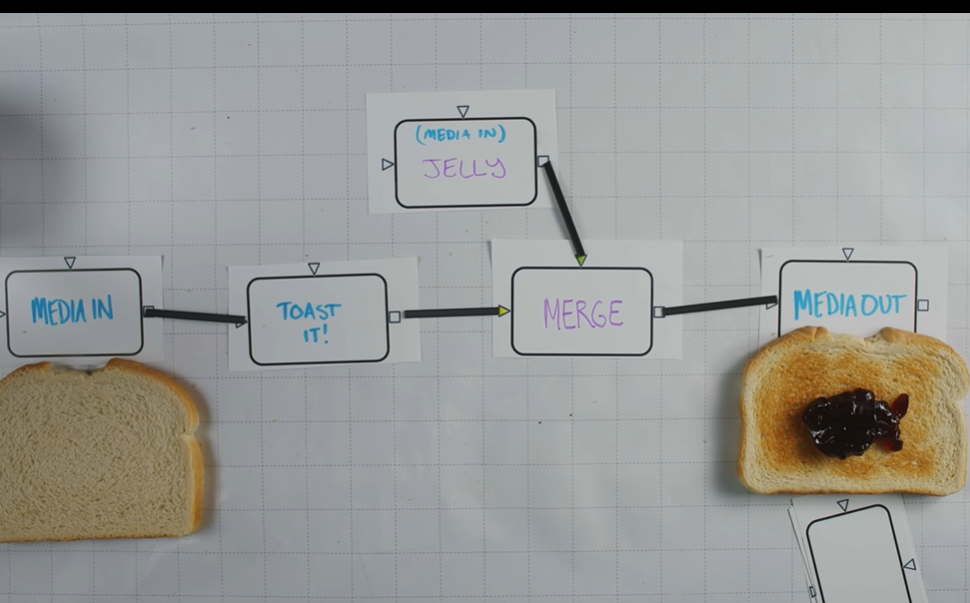 (MEDIA IN)
JELLY
MEDIA IN
TOAST
IT!
MERGE
MEDIA OUT